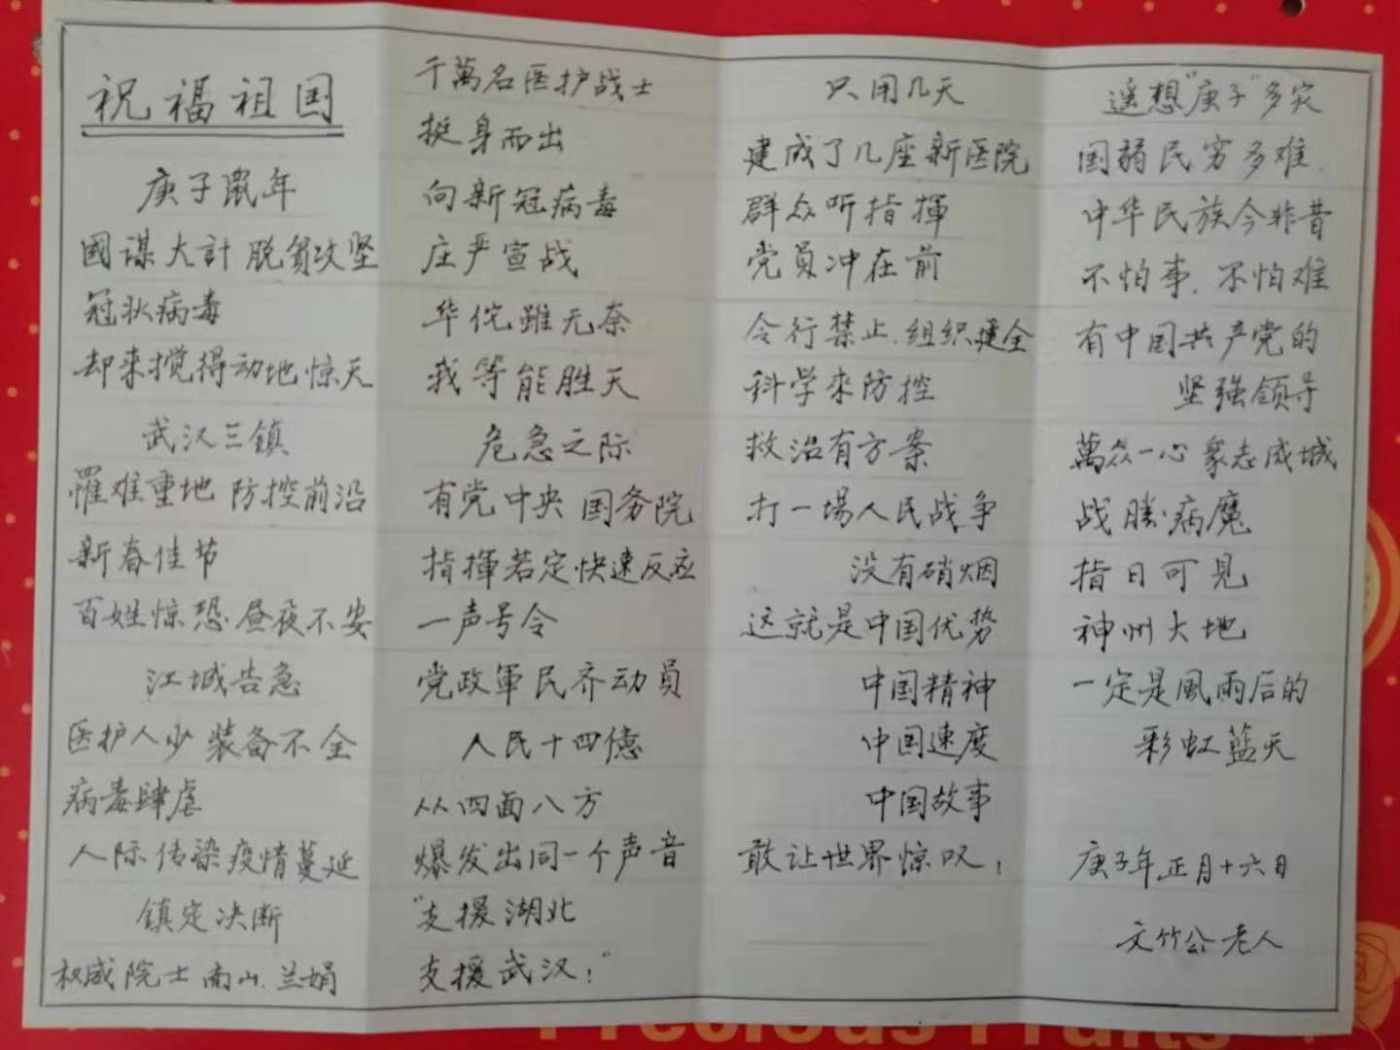 祝福祖国
庚子鼠年
國谋大計 脱贫攻坚
冠状病毒
却来搅得动地惊天
武汉三镇
罹难重地 防控前沿
新春佳节
百姓惊恐 昼夜不安
江城告急
医护人少 装备不全
病毒肆虐
人际传染疫情蔓延
鎮定决断
权威院士 南山.兰娟
千萬名医护战士
挺身而出
向新冠病毒
庄严宣战
华佗雖无奈
我等能胜天
危急之际
有党中央 国务院
指揮若定快速反应
一声号令
党政軍民齐动員
人民十四億
从四面八方
爆发出同一个声音
"支援湖北
支援武汉！"
只用几天
建成了几座新医院
群众听指揮
党员冲在前
令行禁止.组织健全
科学来防控
救治有方案
打一場人民战争
没有硝烟
这就是中国优势
中国精神
中国速度
中国故事
敢让世界惊叹！
遥想"庚子"多灾
国弱民穷多难.
中华民族今非昔
不怕事.不怕难
有中国共产党的
坚强领导
萬众一心 衆志成城
战勝病魔
指日可见
神州大地
一定是風雨后的
彩虹蓝天
庚子年正月十六日
文竹公老人
Precious Fruits